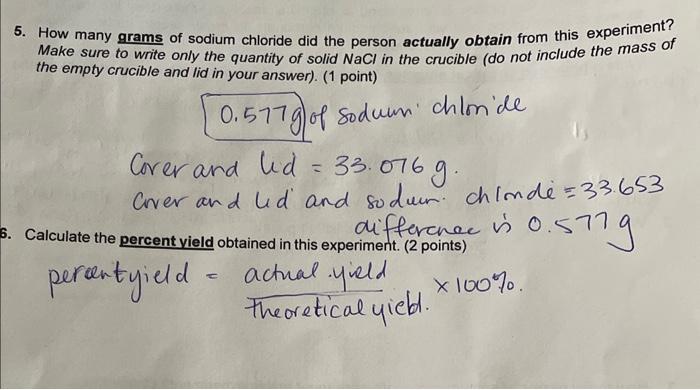 5. How many grams of sodium chloride did the person actually obtain from this experiment?
Make sure to write only the quantity of solid NaCl in the crucible (do not include the mass of
the empty crucible and lid in your answer). (1 point)
0.577g of soduum chloride
Cover and lid = 33.076 g.
Cover and lid and sodium chloride = 33.653
difference is 0.577g
6. Calculate the percent yield obtained in this experiment. (2 points)
percent yield = actual yield
Theoretical yield. × 100%.